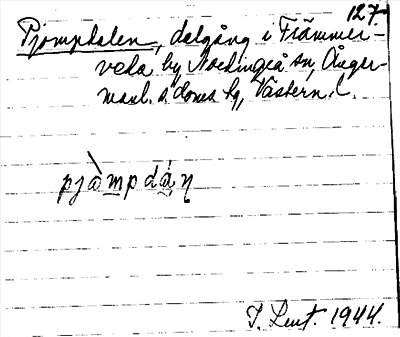 127
Pjompdalen, dalgång i Främmer-
veda by Nordingrå sn, Ånger-
manl. s. doms hg, Västern. l.
pjàmpdáṇ
I. Leut. 1944.